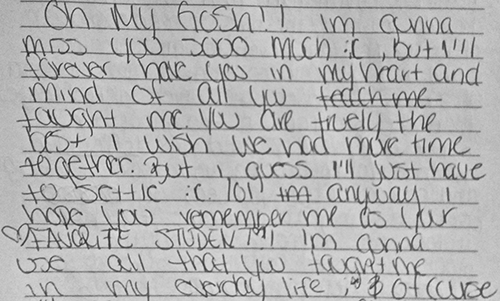 Oh My Gosh!! im gunna
miss you sooo much :c , but I'll
forever have you in my heart and
mind of all you teach me
taught me you are truely the
best I wish we had more time
together. But i guess I'll just have
to settle :c. lol anyway I
hope you remember me as your
♡FAVORITE STUDENT!! im gunna
use all that you taught me
in my everday life, & of curse